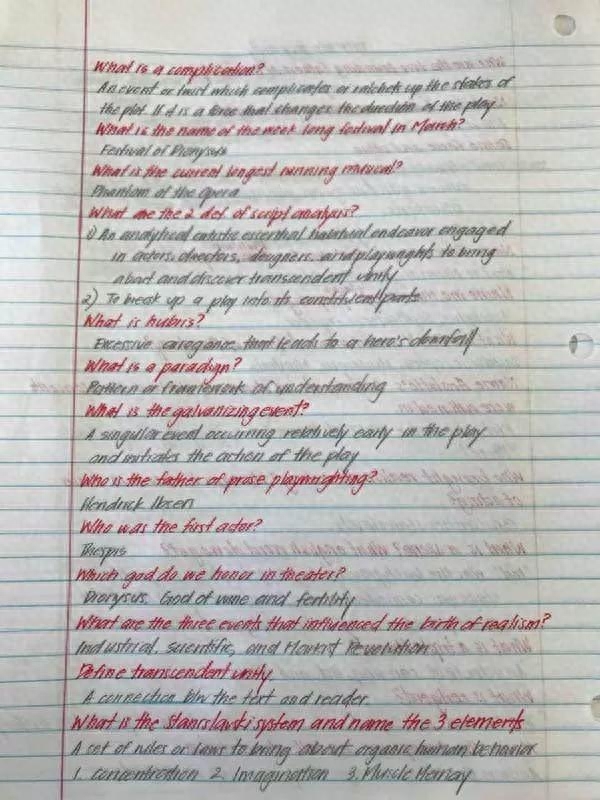 What is a complication?
An event or twist which complicates or ratchets up the stakes of
the plot. If it is a force that changes the direction of the play.
What is the name of the week long festival in March?
Festival of Dionysus
What is the current longest running musical?
Phantom of the Opera
What are the 2 def of script analysis?
1) An analytical artistic essential habitual endeavor engaged
in actors, directors, designers, and playwrights to bring
about and discover transcendent unity
2) To break up a play into its constituent parts
What is hubris?
Excessive arrogance that leads to a hero's downfall
What is a paradigm?
Pattern or framework of understanding
What is the galvanizing event?
A singular event occurring relatively early in the play
and initiates the action of the play
Who is the father of prose playwrighting?
Hendrick Ibsen
Who was the first actor?
Thespis
Which god do we honor in theater?
Dionysus, God of wine and fertility
What are the three events that influenced the birth of realism?
Industrial, Scientific, and Marxist Revolution
Define transcendent unity
A connection b/w the text and reader.
What is the Stanislavski system and name the 3 elements
A set of rules or laws to bring about organic human behavior
1. Concentration 2. Imagination 3. Muscle Memory